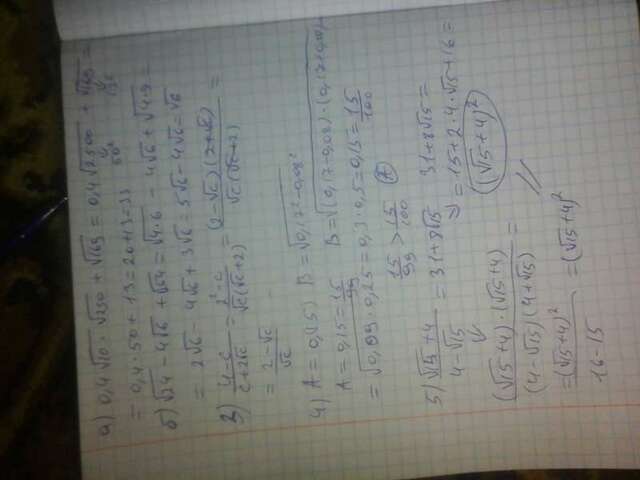 а) 0,4√10 · √250 + √169 = 0,4√2500 + √169 =
50² 13²
= 0,4 · 50 + 13 = 20 + 13 = 33
б) √24 - 4√6 + √54 = √4·6 - 4√6 + √9·6 =
= 2√6 - 4√6 + 3√6 = 5√6 - 4√6 = √6
3) 4-c / c+2√c = 2²-c / √c(√c+2) = (2-√c)(2+√c) / √c(√c+2) =
= 2-√c / √c
4) A = 0,(15) B = √0,17²-0,08²
A = 0,15 = 15/99 B = √(0,17-0,08)·(0,17+0,08)
= √0,09·0,25 = 0,3·0,5 = 0,15 = 15/100
15/99 > 15/100 (A)
5) √15+4 / 4-√15 = 31+8√15 31+8√15 =
= 15+2·4·√15+16 =
(√15+4)²
(√15+4)·(√15+4) / (4-√15)(4+√15) =
= (√15+4)² / 16-15 = (√15+4)²